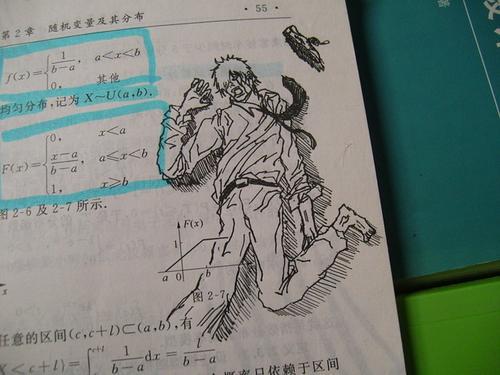 第2章 随机变量及其分布 · 55 ·
f(x)={1/(b-a), a<x<b
0, 其他
均匀分布,记为 X~U(a,b).
F(x)={0, x<a
(x-a)/(b-a), a≤x<b
1, x≥b
图 2-6 及 2-7 所示.
F(x)
1
a 0 b
图 2-7
x
任意的区间(c,c+l)⊂(a,b),有
X<c+l}=∫ c+l 1/(b-a) dx = l/(b-a)
概率只依赖于区间